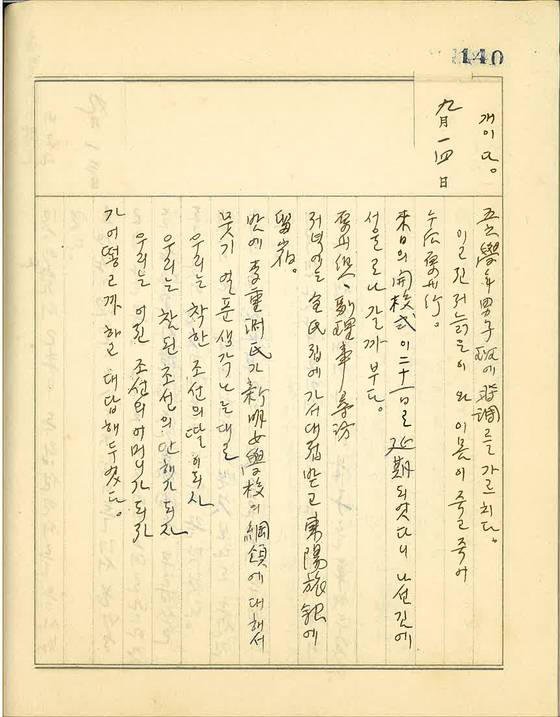 140
개이다。
五六學年男子班에 時調를 가르치다。
이고진저늙은이와 이몸이죽고죽어
九月一四日
午后慶州行。
來日의 開校式이 二十一日로 延期되엿다니 나선길에
서울로나 갈까부다。
副理事 尋訪
저녁에는 金氏집에 가서 대접받고 東陽旅舘에
留宿。
밧에 李重澍氏가 新明女學校의 綱領에 대해서
뭇기 얼푼 생각나는대로
우리는 착한 조선의 딸이되자
우리는 참된 조선의 안해가되자
우리는 어진 조선의 어머니가되자
가 어떻고까 하고 대답해두엇다。